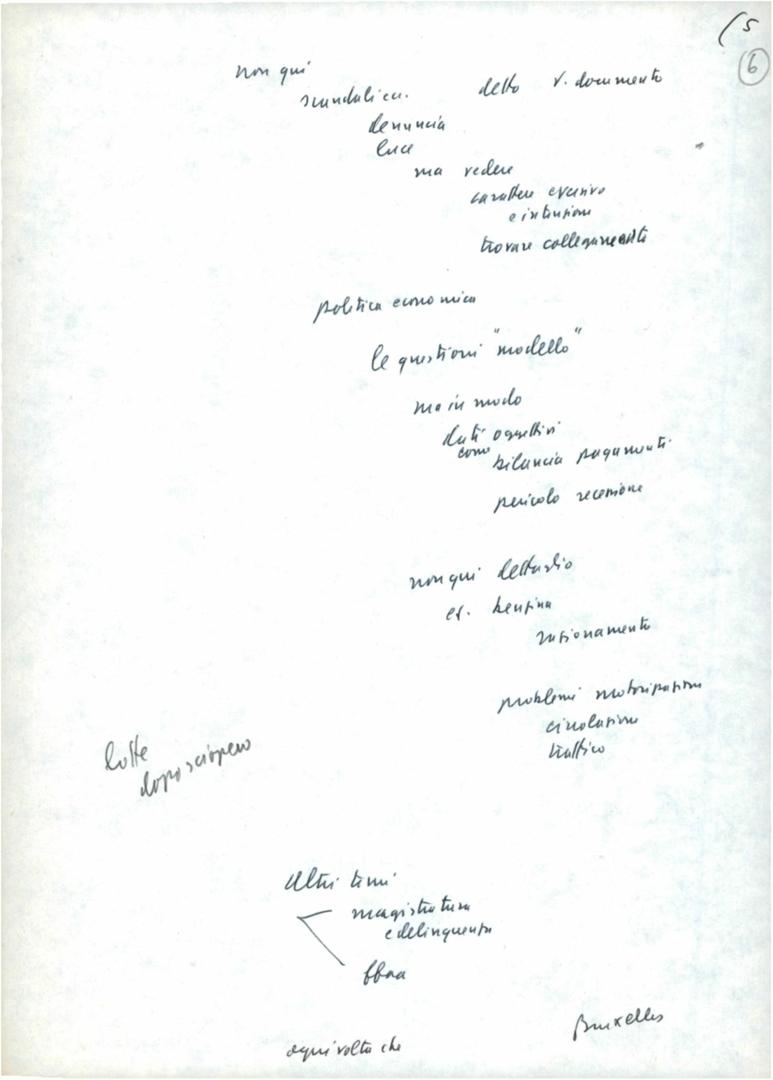 (5
6
non qui
scandalica. detto v. documento
denuncia
luce
ma vedere
carattere eversivo
e intenzione
trovare collegamenti
politica economica
le questioni "modello"
ma in modo
dati oggettivi
come bilancia pagamenti
pericolo recessione
non qui dettaglio
es. benzina
razionamento
problemi motorizzazione
circolazione
traffico
lotte
dopo sciopero
Altri temi
magistratura
e delinquenza
ogni volta che
Bruxelles